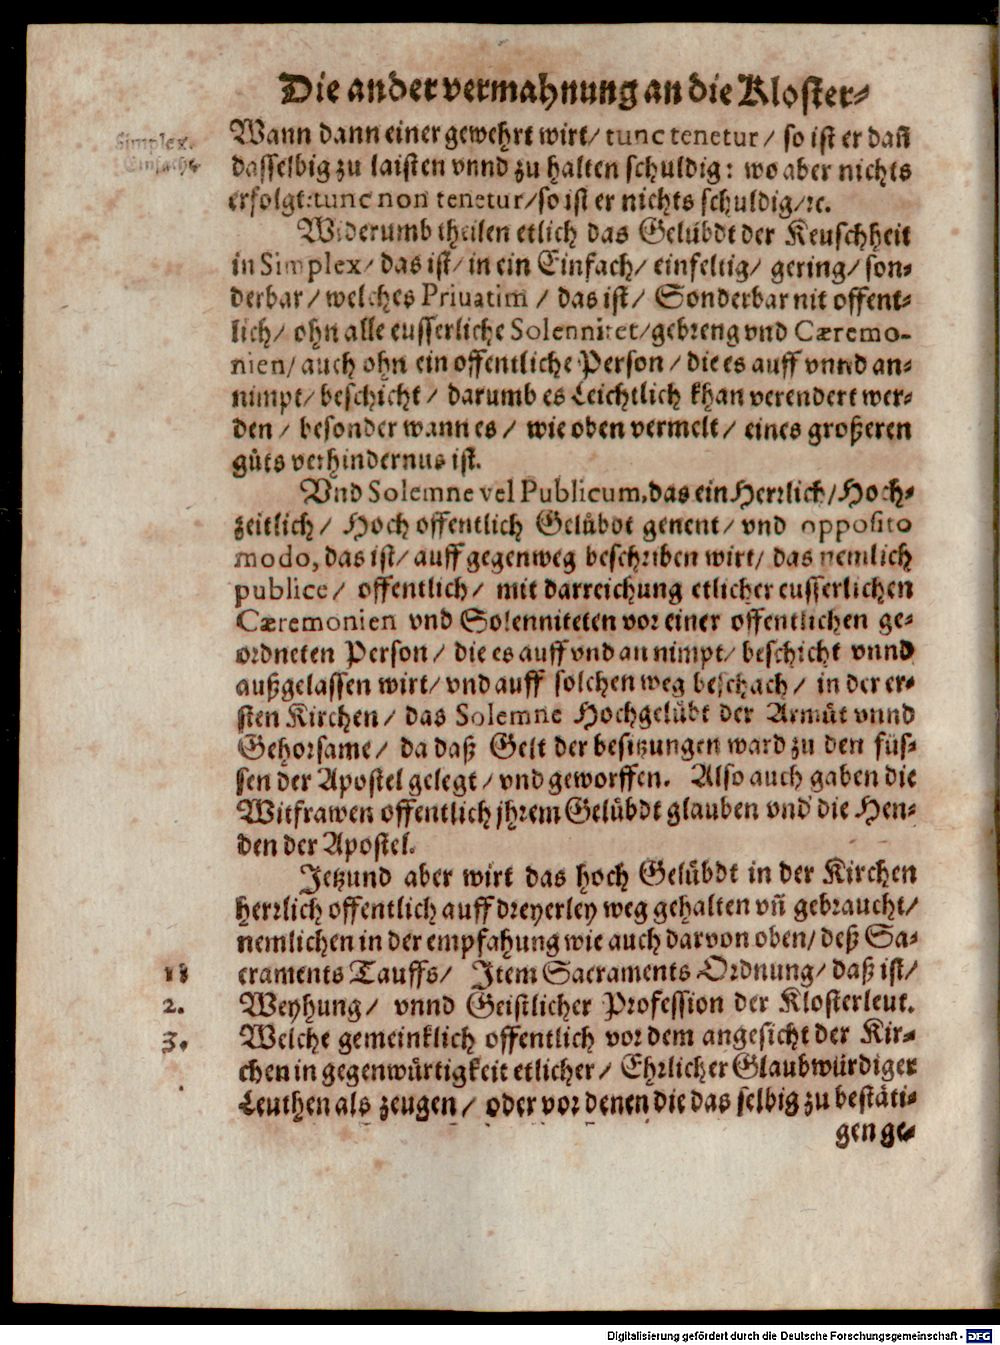 Die ander vermahnung an die Kloster⸗
Simplex.
Einfache
Wann dann einer gewehrt wirt/ tunc tenetur/ so ist er dañ
dasselbig zu laisten vnnd zu halten schuldig: wo aber nichts
erfolgt: tunc non tenetur/ so ist er nichts schuldig/ ꝛc.
Widerumb theilen etlich das Gelübdt der Keuschheit
in Simplex/ das ist/ in ein Einfach/ einfeltig/ gering/ son⸗
derbar/ welches Priuatim/ das ist/ Sonderbar nit offent⸗
lich/ ohn alle eusserliche Solennitet/ gebreng vnd Cæremo-
nien/ auch ohn ein offentliche Person/ die es auff vnnd an⸗
nimpt/ beschicht/ darumb es Leichtlich khan verendert wer⸗
den/ besonder wann es/ wie oben vermelt/ eines großeren
gůts verhindernus ist.
Vnd Solemne vel Publicum, das ein Herrlich/ Hoch⸗
zeitlich/ Hoch offentlich Gelübdt genent/ vnd opposito
modo, das ist/ auff gegenweg beschriben wirt/ das nemlich
publice/ offentlich/ mit darreichung etlicher eusserlichen
Cæremonien vnd Solenniteten vor einer offentlichen ge⸗
ordneten Person/ die es auff vnd an nimpt/ beschicht vnnd
außgelassen wirt/ vnd auff solchen weg beschach/ in der er⸗
sten Kirchen/ das Solemne Hochgelübt der Armůt vnnd
Gehorsame/ da daß Gelt der besitzungen ward zu den füs⸗
sen der Apostel gelegt/ vnd geworffen. Also auch gaben die
Witfrawen offentlich jhrem Gelübdt glauben vnd die Hen⸗
den der Apostel.
Jetzund aber wirt das hoch Gelübdt in der Kirchen
herrlich offentlich auff dreyerley weg gehalten vñ gebraucht/
nemlichen in der empfahung wie auch darvon oben/ deß Sa⸗
craments Tauffs/ Item Sacraments Ordnung/ daß ist/
2. Weyhung/ vnnd Geistlicher Profession der Klosterleut.
3. Welche gemeinklich offentlich vor dem angesicht der Kir⸗
chen in gegenwürtigkeit etlicher/ Ehrlicher Glaubwürdiger
Leuthen als zeugen/ oder vor denen die das selbig zu bestäti⸗
gen ge⸗
Digitalisierung gefördert durch die Deutsche Forschungsgemeinschaft - DFG